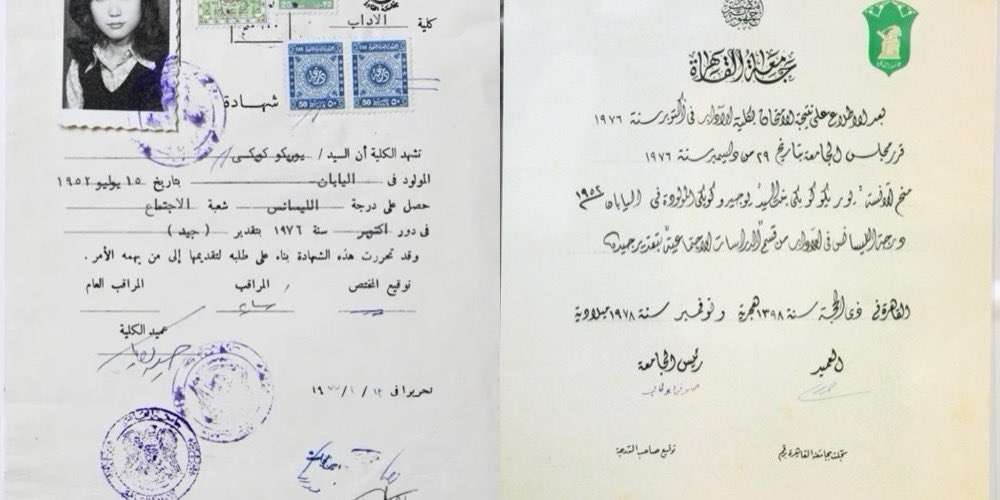 كلية الاداب
شهادة
50
50
تشهد الكلية أن السيد / يوريكو كويكى
المولود فى اليابان بتاريخ ١٥ يوليو ١٩٥٢
حصل على درجة الليسانس شعبة الاجتماع
فى دور اكتوبر سنة ١٩٧٦ بتقدير ( جيد )
وقد تحررت هذه الشهادة بناء على طلبه لتقديمها إلى من يهمه الأمر.
توقيع المختص المراقب المراقب العام
عميد الكلية
تحريرا فى
جامعة القاهرة
بعد الاطلاع على نتيجة الامتحان بكلية الآداب فى أكتوبر سنة ١٩٧٦
قرر مجلس الجامعة بتاريخ ٢٩ من ديسمبر سنة ١٩٧٦
منح الآنسة يوريكو كويكى بنت السيد يوجيرو كويكى المولودة فى اليابان ١٩٥٢
درجة الليسانس فى الآداب من قسم الدراسات الاجتماعية بتقدير جيد
القاهرة فى ذى الحجة سنة ١٣٩٨ هجرية و نوفمبر سنة ١٩٧٨ ميلادية
العميد رئيس الجامعة
سجلت بجامعة القاهرة برقم توقيع صاحب الدرجة